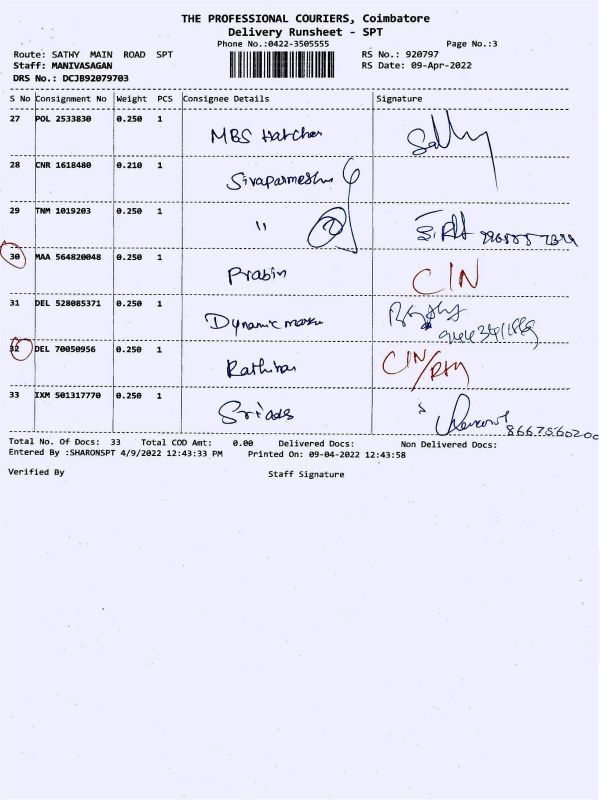 THE PROFESSIONAL COURIERS, Coimbatore
Delivery Runsheet - SPT
Phone No.:0422-3505555 Page No.:3
Route: SATHY MAIN ROAD SPT RS No.: 920797
Staff: MANIVASAGAN RS Date: 09-Apr-2022
DRS No.: DCJB92079703
S No Consignment No Weight PCS Consignee Details Signature
27 POL 2533830 0.250 1 MBS Hatcher Sathy
28 CNR 1618480 0.210 1
29 TNM 1019203 0.250 1 "
30 MAA 564820048 0.250 1 Prabin CIN
31 DEL 528085371 0.250 1 Dynamic
32 DEL 70050956 0.250 1 CIN
33 IXM 501317770 0.250 1
Total No. Of Docs: 33 Total COD Amt: 0.00 Delivered Docs: Non Delivered Docs:
Entered By :SHARONSPT 4/9/2022 12:43:33 PM Printed On: 09-04-2022 12:43:58
Verified By Staff Signature